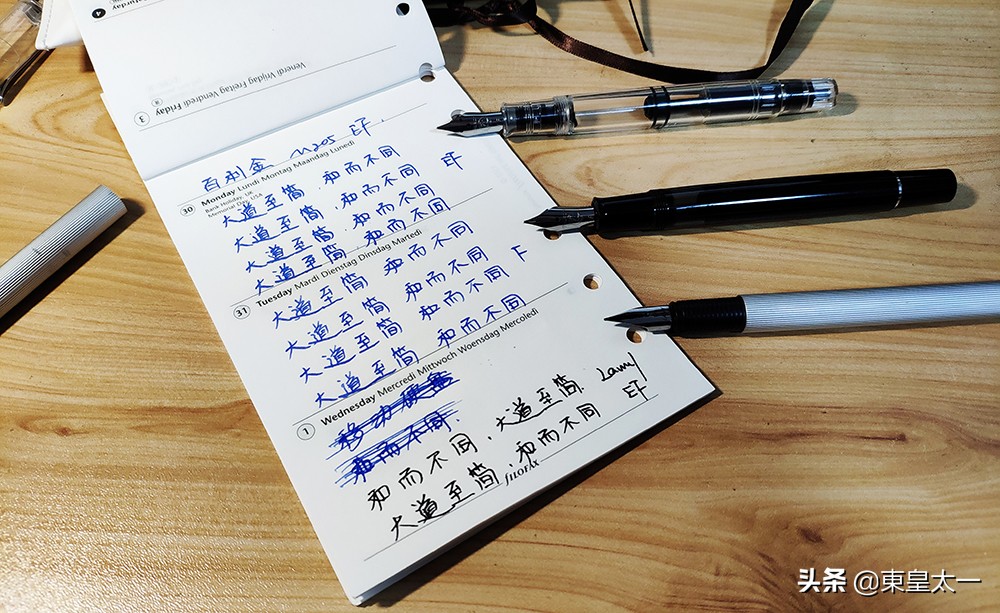 Saturday
4
Venerdì Vrijdag Freitag Vendredi Friday
3
百利金 M205 EF.
30 Monday Lundi Montag Maandag Lunedì
Bank Holiday, UK
Memorial Day, USA
大道至简.和而不同 EF
大道至简.和而不同
大道至简.和而不同
大道至简.和而不同
31 Tuesday Mardi Dienstag Dinsdag Martedì
大道至简 和而不同
大道至简 和而不同 F
大道至简 和而不同
大道至简 和而不同
1 Wednesday Mercredi Mittwoch Woensdag Mercoledì
和而不同
和而不同.大道至简. Lamy
大道至简.和而不同 EF
FILOFAX
头条 @東皇太一